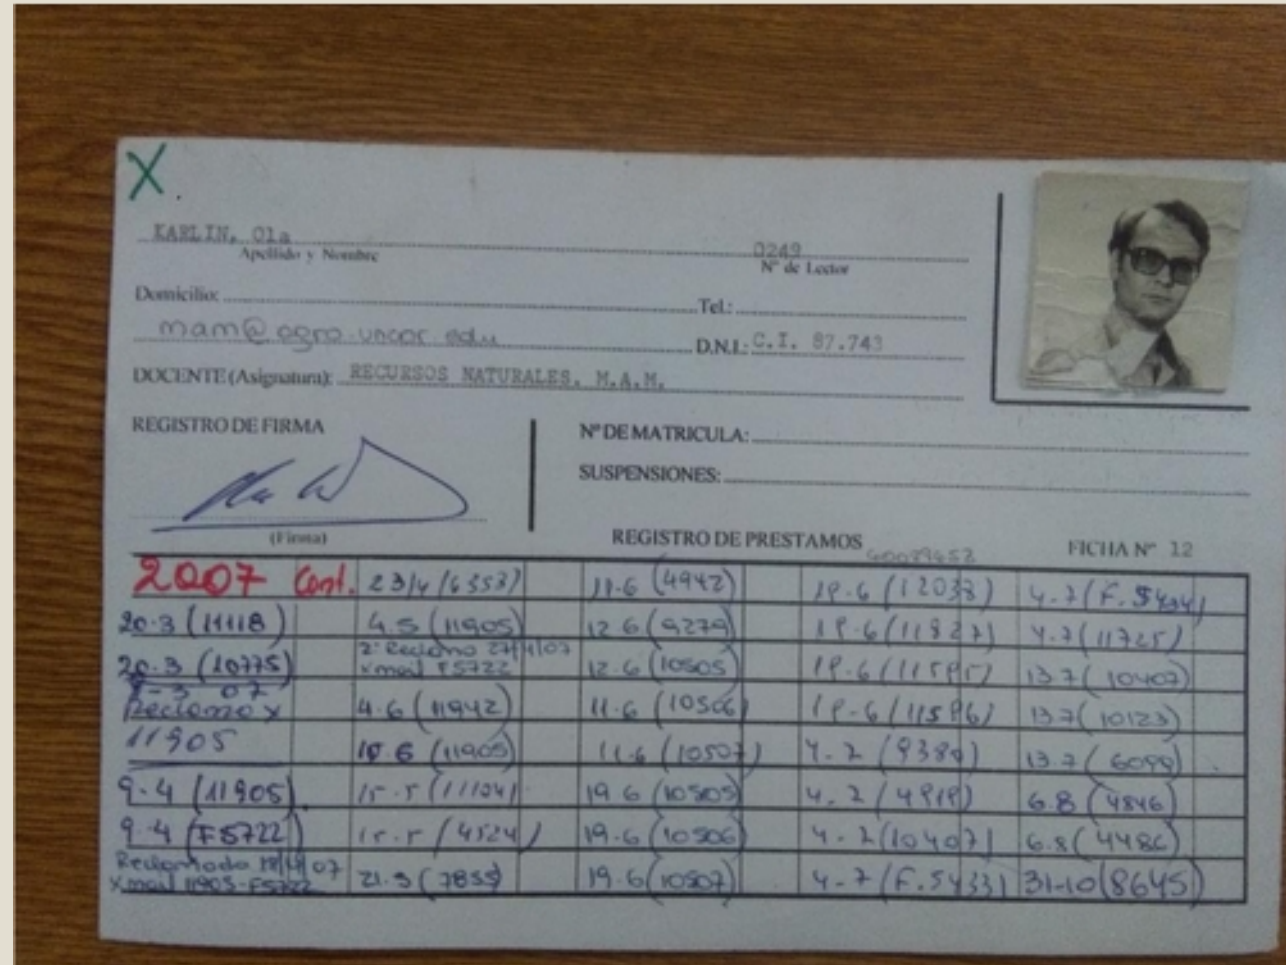 X
KARLIN, Ola 0249
Apellido y Nombre N° de Lector
Domicilio: Tel.:
mam@agro.uncor.edu D.N.I.: C.I. 87.743
DOCENTE (Asignatura): RECURSOS NATURALES. M.A.M.
REGISTRO DE FIRMA N° DE MATRICULA:
SUSPENSIONES:
(Firma) REGISTRO DE PRESTAMOS FICHA N° 12
2007 Cont. 23/4 (6353) 11-6 (4942) 19-6 (12038) 4-7 (F.5434)
20-3 (11118) 4.5 (11905) 12 6 (9279) 19-6 (11827) 4-7 (11725)
20-3 (10775) 2° Reclamo 27/4/07 12-6 (10505) 19-6 (11595) 13 7 (10407)
Xmail F5722
Reclamo x 4-6 (11942) 11-6 (10506) 19-6 (11596) 13-7 (10123)
11905 18-6 (11905) 11-6 (10507) 4-7 (9389) 13-7 (6099)
9-4 (11905) 15-5 (11104) 19 6 (10505) 4-7 (4919) 6.8 (4846)
9-4 (F5722) 15-5 (4524) 19-6 (10506) 4-7 (10407) 6.8 (4486)
Reclamado 18/4/07 21-5 (7855) 19-6 (10507) 4-7 (F.5433) 31-10 (8645)
Xmail 11905-F5722